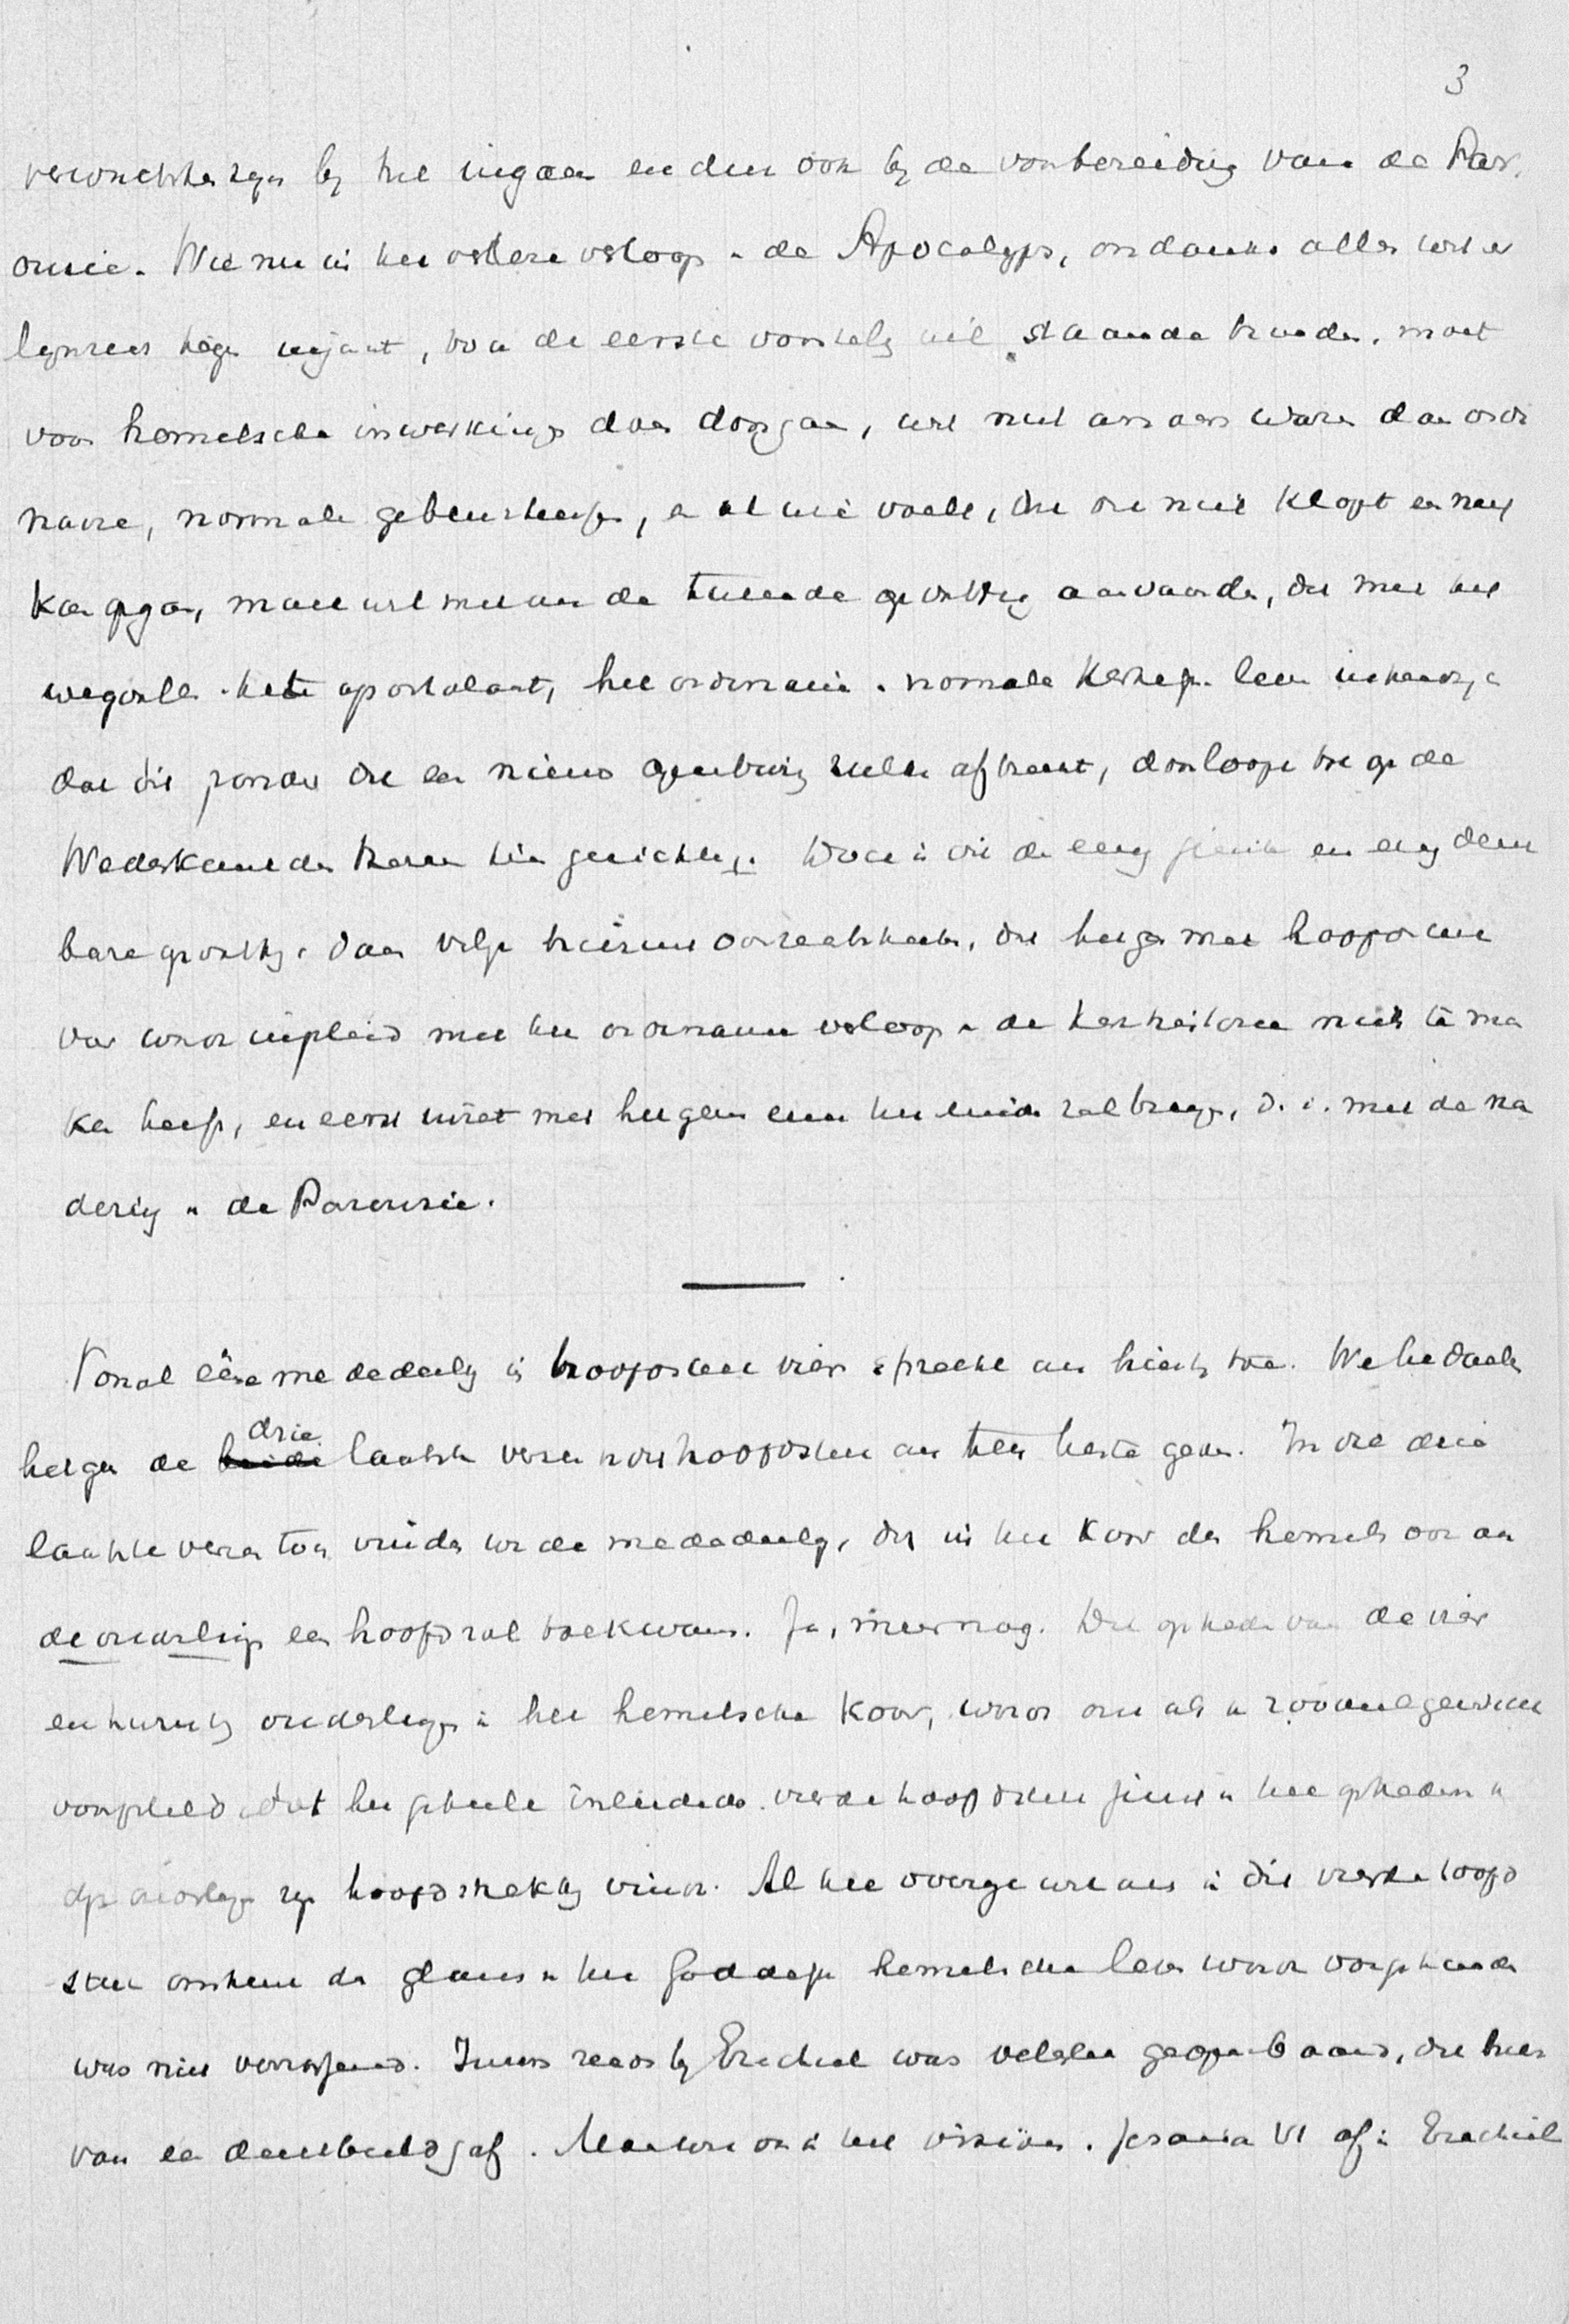 3
verwachten zijn bij het ingaan en dus ook bij de voorbereiding van de Par
ousie. Wie nu in het verdere verloop v. de Apocalyps, ondanks alles wat er
lijnrecht tegen ingaat, de eerste voorstelling wil staande houden, moet
voor hemelsche inwerkingen doen doorgaan, wat niet anders waren dan ordi
naire, normale gebeurtenissen, en al wie voelt, dat dit niet klopt en niet
kan opgaan, moet wel met ons de tweede opvatting aanvaarden, dat met het
wegvallen v. het apostolaat, het ordinaire en normale kerkelijk leven
dat dit zonder dat een nieuwe openbaring zulks afbreekt, doorloopt tot op de
Wederkomst des Heeren gerichte. Doch is dit de eenig juiste en eenig denk
bare opvatting, dan volgt hieruit noodzakelijk, dat hetgeen met hoofdstuk
vier wordt ingeleid met het ordinaire verloop v. de kerkhistorie niets te ma
ken heeft, en eerst intreedt met hetgeen ons het einde zal brengen, d. i. met de na
dering v. de Parousie.
Vooral ééne mededeeling in hoofdstuk vier spreekt ons hierbij toe. We bedoelen
hetgeen de drie laatste verzen v. dit hoofdstuk ons ten beste geven. In die drie
laatste verzen toch vinden we de mededeeling, dat in het koor des hemels ook aan
de ouderlingen een hoofdrol toekwam. Ja, meer nog. Het optreden van de vier
en twintig ouderlingen in het hemelsche koor, wordt ons als v. zooveel gewicht
voorgesteld, dat het geheele inleidende vierde hoofdstuk juist in het optreden v.
de ouderlingen zijn hoofdstrekking vindt. Al het overige wat ons in dit vierde hoofd
stuk omtrent de glans v. het Goddelijk hemelsche leven wordt voorgehouden
was niet verrassend. Immers reeds bij Ezechiël was veelszins geopenbaard, dat hier
van een denkbeeld gaf. Men leze ook in het visioen v. Jesaia VI of in Ezechiël